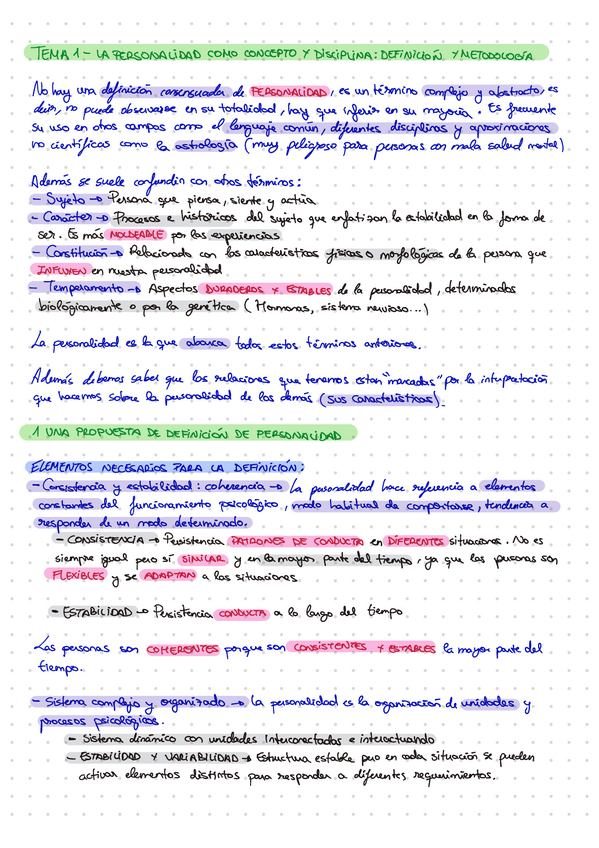 TEMA 1 - LA PERSONALIDAD COMO CONCEPTO Y DISCIPLINA: DEFINICIÓN Y METODOLOGÍA
No hay una definición consensuada de PERSONALIDAD, es un término complejo y abstracto, es
decir, no puede observarse en su totalidad, hay que inferir en su mayoría. Es frecuente
su uso en otros campos como el lenguaje común, diferentes disciplinas y aproximaciones
no científicas como la astrología (muy peligroso para personas con mala salud mental)
Además se suele confundir con otros términos:
- Sujeto → Persona que piensa, siente y actúa
- Carácter → Procesos e históricos del sujeto que enfatizan la estabilidad en la forma de
ser. Es más MOLDEABLE por las experiencias
- Constitución → Relacionado con las características físicas o morfológicas de la persona que
INFLUYEN en nuestra personalidad
- Temperamento → Aspectos DURADEROS Y ESTABLES de la personalidad, determinados
biológicamente o por la genética (Hormonas, sistema nervioso...)
La personalidad es la que abarca todos estos términos anteriores.
Además debemos saber que las relaciones que tenemos estan "marcadas" por la interpretación
que hacemos sobre la personalidad de los demás (sus características).
1 UNA PROPUESTA DE DEFINICIÓN DE PERSONALIDAD
ELEMENTOS NECESARIOS PARA LA DEFINICIÓN:
- Consistencia y estabilidad: coherencia → La personalidad hace referencia a elementos
constantes del funcionamiento psicológico, modo habitual de comportarse, tendencia a
responder de un modo determinado.
- CONSISTENCIA → Persistencia PATRONES DE CONDUCTA en DIFERENTES situaciones. No es
siempre igual pero sí SIMILAR y en la mayor parte del tiempo, ya que las personas son
FLEXIBLES y se ADAPTAN a las situaciones
- ESTABILIDAD → Persistencia CONDUCTA a lo largo del tiempo
Las personas son COHERENTES porque son CONSISTENTES Y ESTABLES la mayor parte del
tiempo.
- Sistema complejo y organizado → La personalidad es la organización de unidades y
procesos psicológicos.
- Sistema dinámico con unidades interconectadas e interactuando
- ESTABILIDAD Y VARIABILIDAD → Estructura estable pero en cada situación se pueden
activar elementos distintos para responder a diferentes requerimientos.